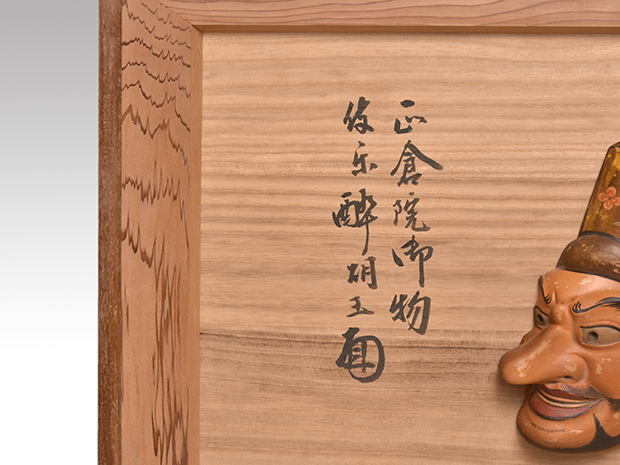 正倉院御物
伎乐酔胡王面